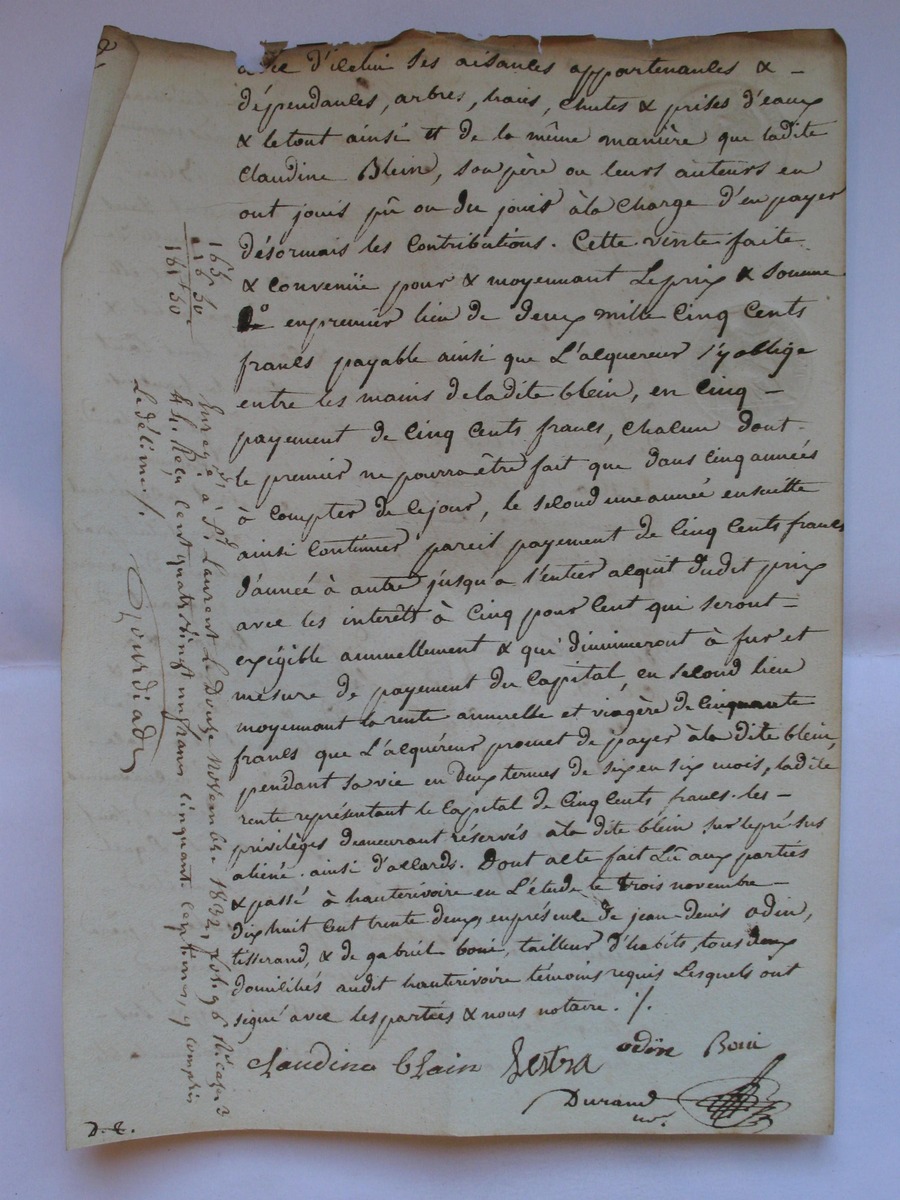 d'icelui ses aisances appartenances &
dépendances, arbres, haies, chutes & prises d'eaux
& le tout ainsi et de la même manière que ladite
Claudine Blein, son père ou leurs auteurs en
ont jouis pû ou du jouir à la charge d'en payer
désormais les contributions. Cette vente faite
& convenüe pour & moyennant le prix & somme
en premier lieu de deux mille cinq cents
francs payable ainsi que L'acquereur s'y oblige
entre les mains de ladite blein, en cinq
payement de cinq cents francs, chacun dont
le premier ne pourra être fait que dans cinq années
à compter de ce jour, le second une année ensuitte
ainsi continuer pareil payement de cinq cents francs
d'année à autre jusqu'a l'entier acquit dudit prix
avec les interêts à cinq pour cent qui seront
exigible annuellement & qui diminueront à fur et
mesure de payement du capital, en second lieu
moyennant la rente annuelle et viagère de cinquante
francs que L'acquéreur promet de payer à la dite blein,
pendant sa vie en deux termes de six en six mois, ladite
rente représentant le capital de cinq cents francs. les
privilèges demeurant réservés à la dite blein sur le pré sus
aliéné. ainsi d'accords. Dont acte fait Lû aux parties
& passé à hauterivoire en L'étude le trois novembre
dix huit cent trente deux, en présence de jean-denis odin,
tisserand, & de gabriel boni, tailleur d'habits, tous deux
domiciliés audit hauterivoire témoins requis Lesquels ont
signé avec les parties & nous notaire. ./.
claudine blain Jestra odin Boni
Durand
no.
D. E.
165
16 50
181 50
Enregé à St. Laurent le Douze Novembre 1832, fol. 96 Ro. case 3
Reçu cent quatre vingt un francs cinquante centimes, y compris
le décime ./.